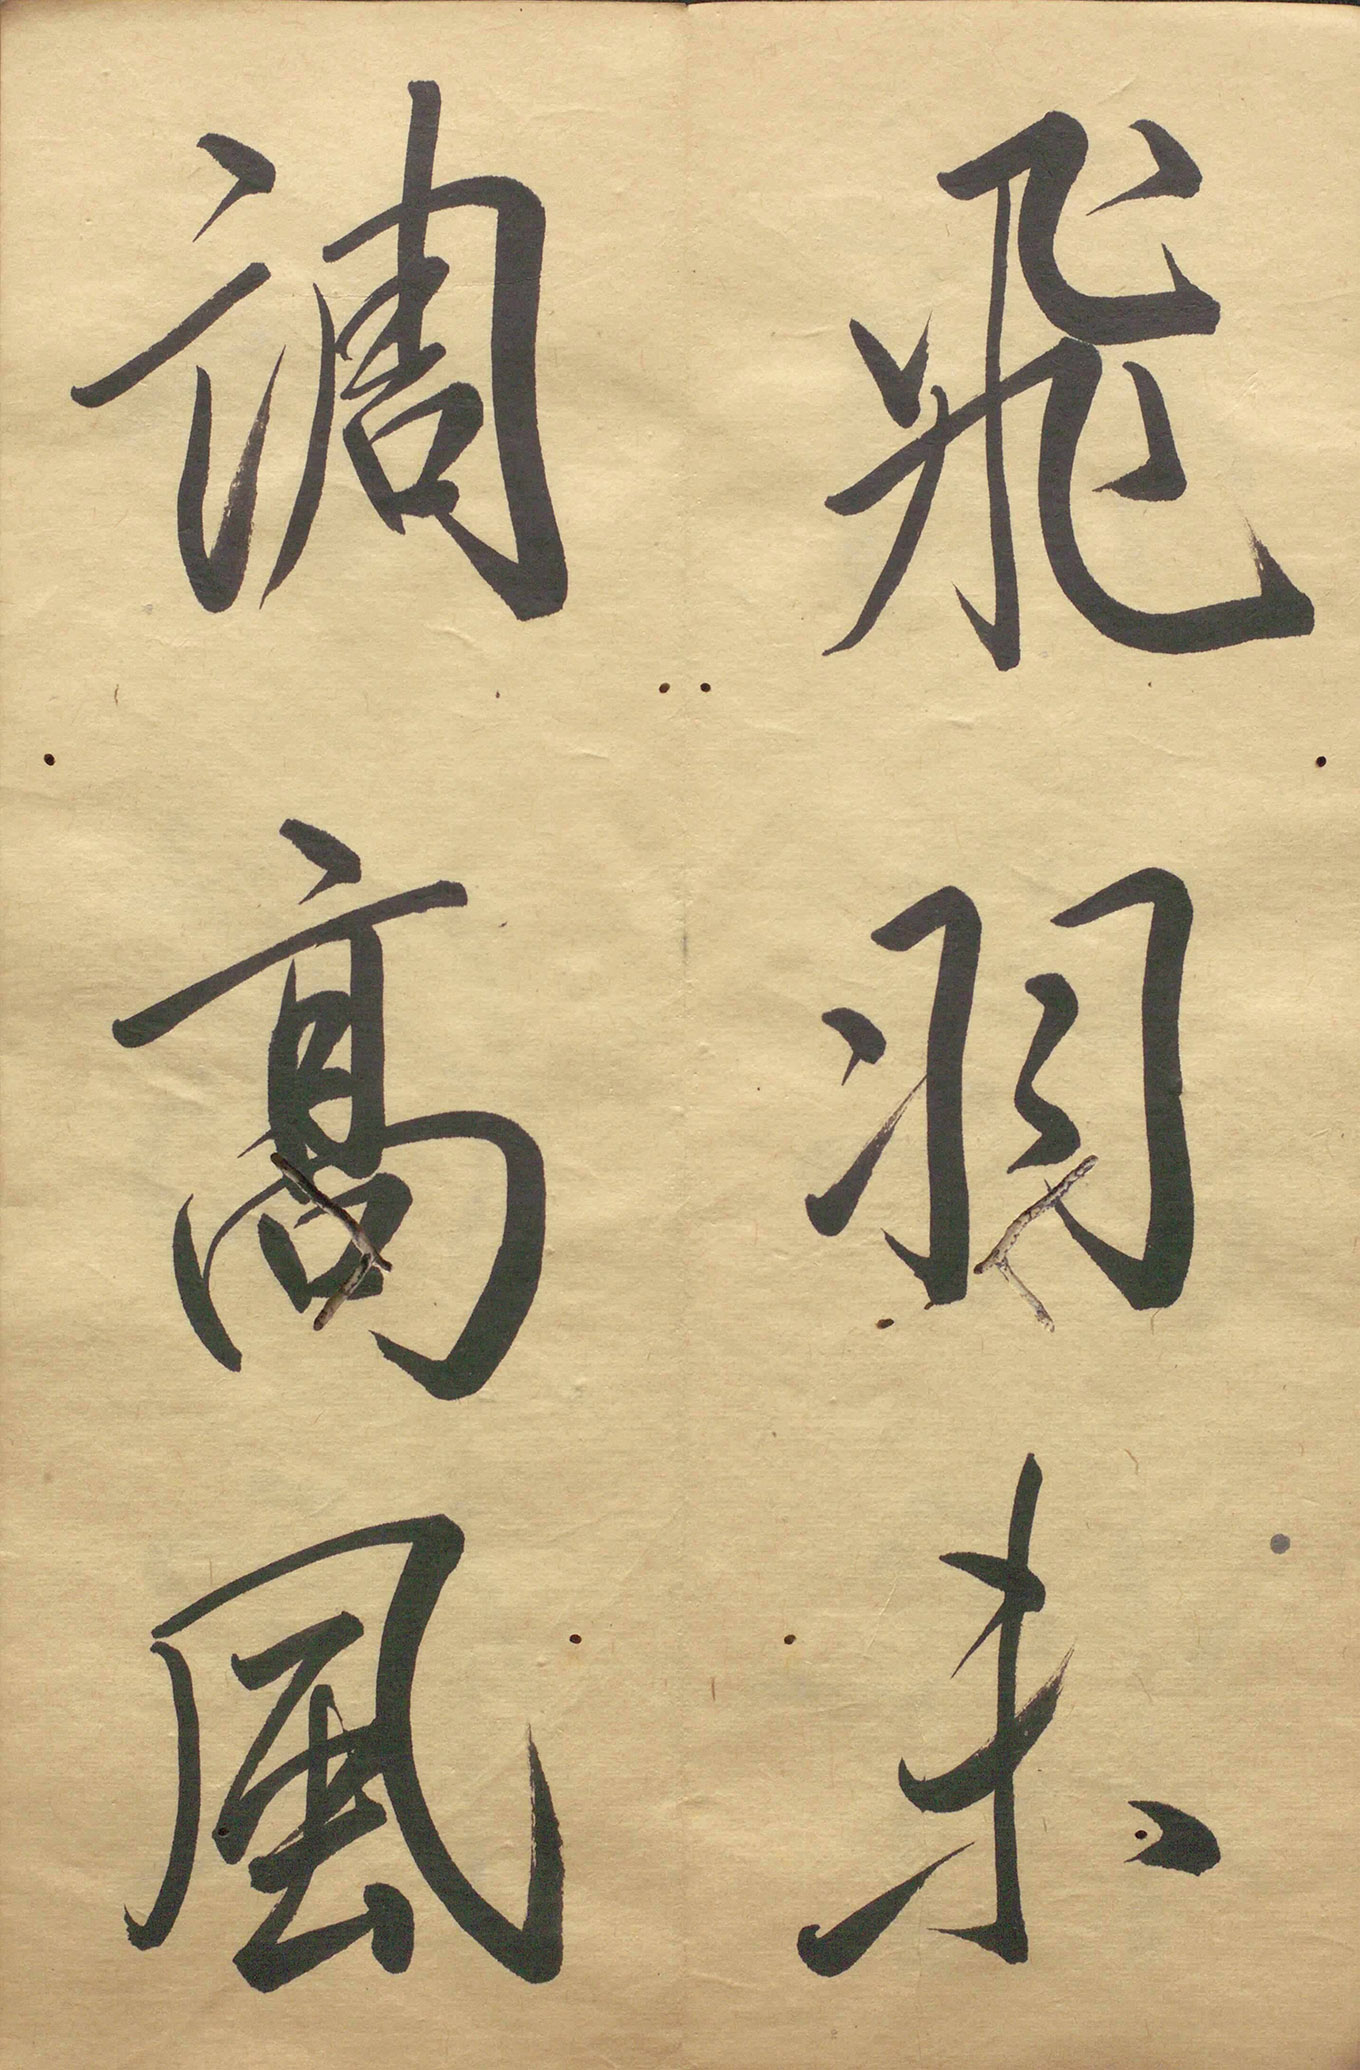 飛羽未
調高風